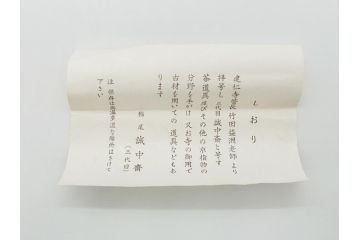 しおり
建仁寺管長竹田益州老師より
拝号し二代目誠中斎と号す
茶道具及びその他の木指物の
分野を手がけ又お寺の御用で
古材を用いての道具なども有
ります
誠中斎
(二代目)
注 保存は高温多湿な場所はさけて
下さい